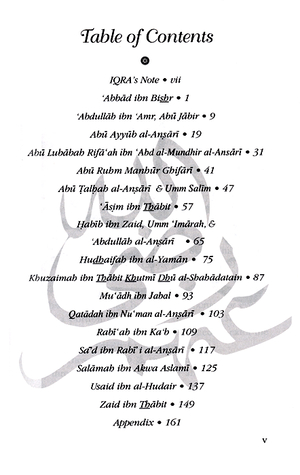 Table of Contents
IQRA's Note • vii
'Abbād ibn Bishr • 1
'Abdullāh ibn 'Amr, Abū Jābir • 9
Abū Ayyūb al-Anṣārī • 19
Abū Lubābah Rifā'ah ibn 'Abd al-Mundhir al-Anṣārī • 31
Abū Ruhm Manhūr Ghifārī • 41
Abū Ṭalḥah al-Anṣārī & Umm Salīm • 47
'Āṣim ibn Thābit • 57
Ḥabīb ibn Zaid, Umm 'Imārah, &
'Abdullah al-Anṣārī • 65
Hudhaifah ibn al-Yamān • 75
Khuzaimah ibn Thābit Khutmī Dhū al-Shahādatain • 87
Mu'ādh ibn Jabal • 93
Qatādah ibn Nu'man al-Anṣārī • 103
Rabī'ah ibn Ka'b • 109
Sa'd ibn Rabī'i al-Anṣārī • 117
Salāmah ibn Akwa Aslamī • 125
Usaid ibn al-Hudair • 137
Zaid ibn Thābit • 149
Appendix • 161
v